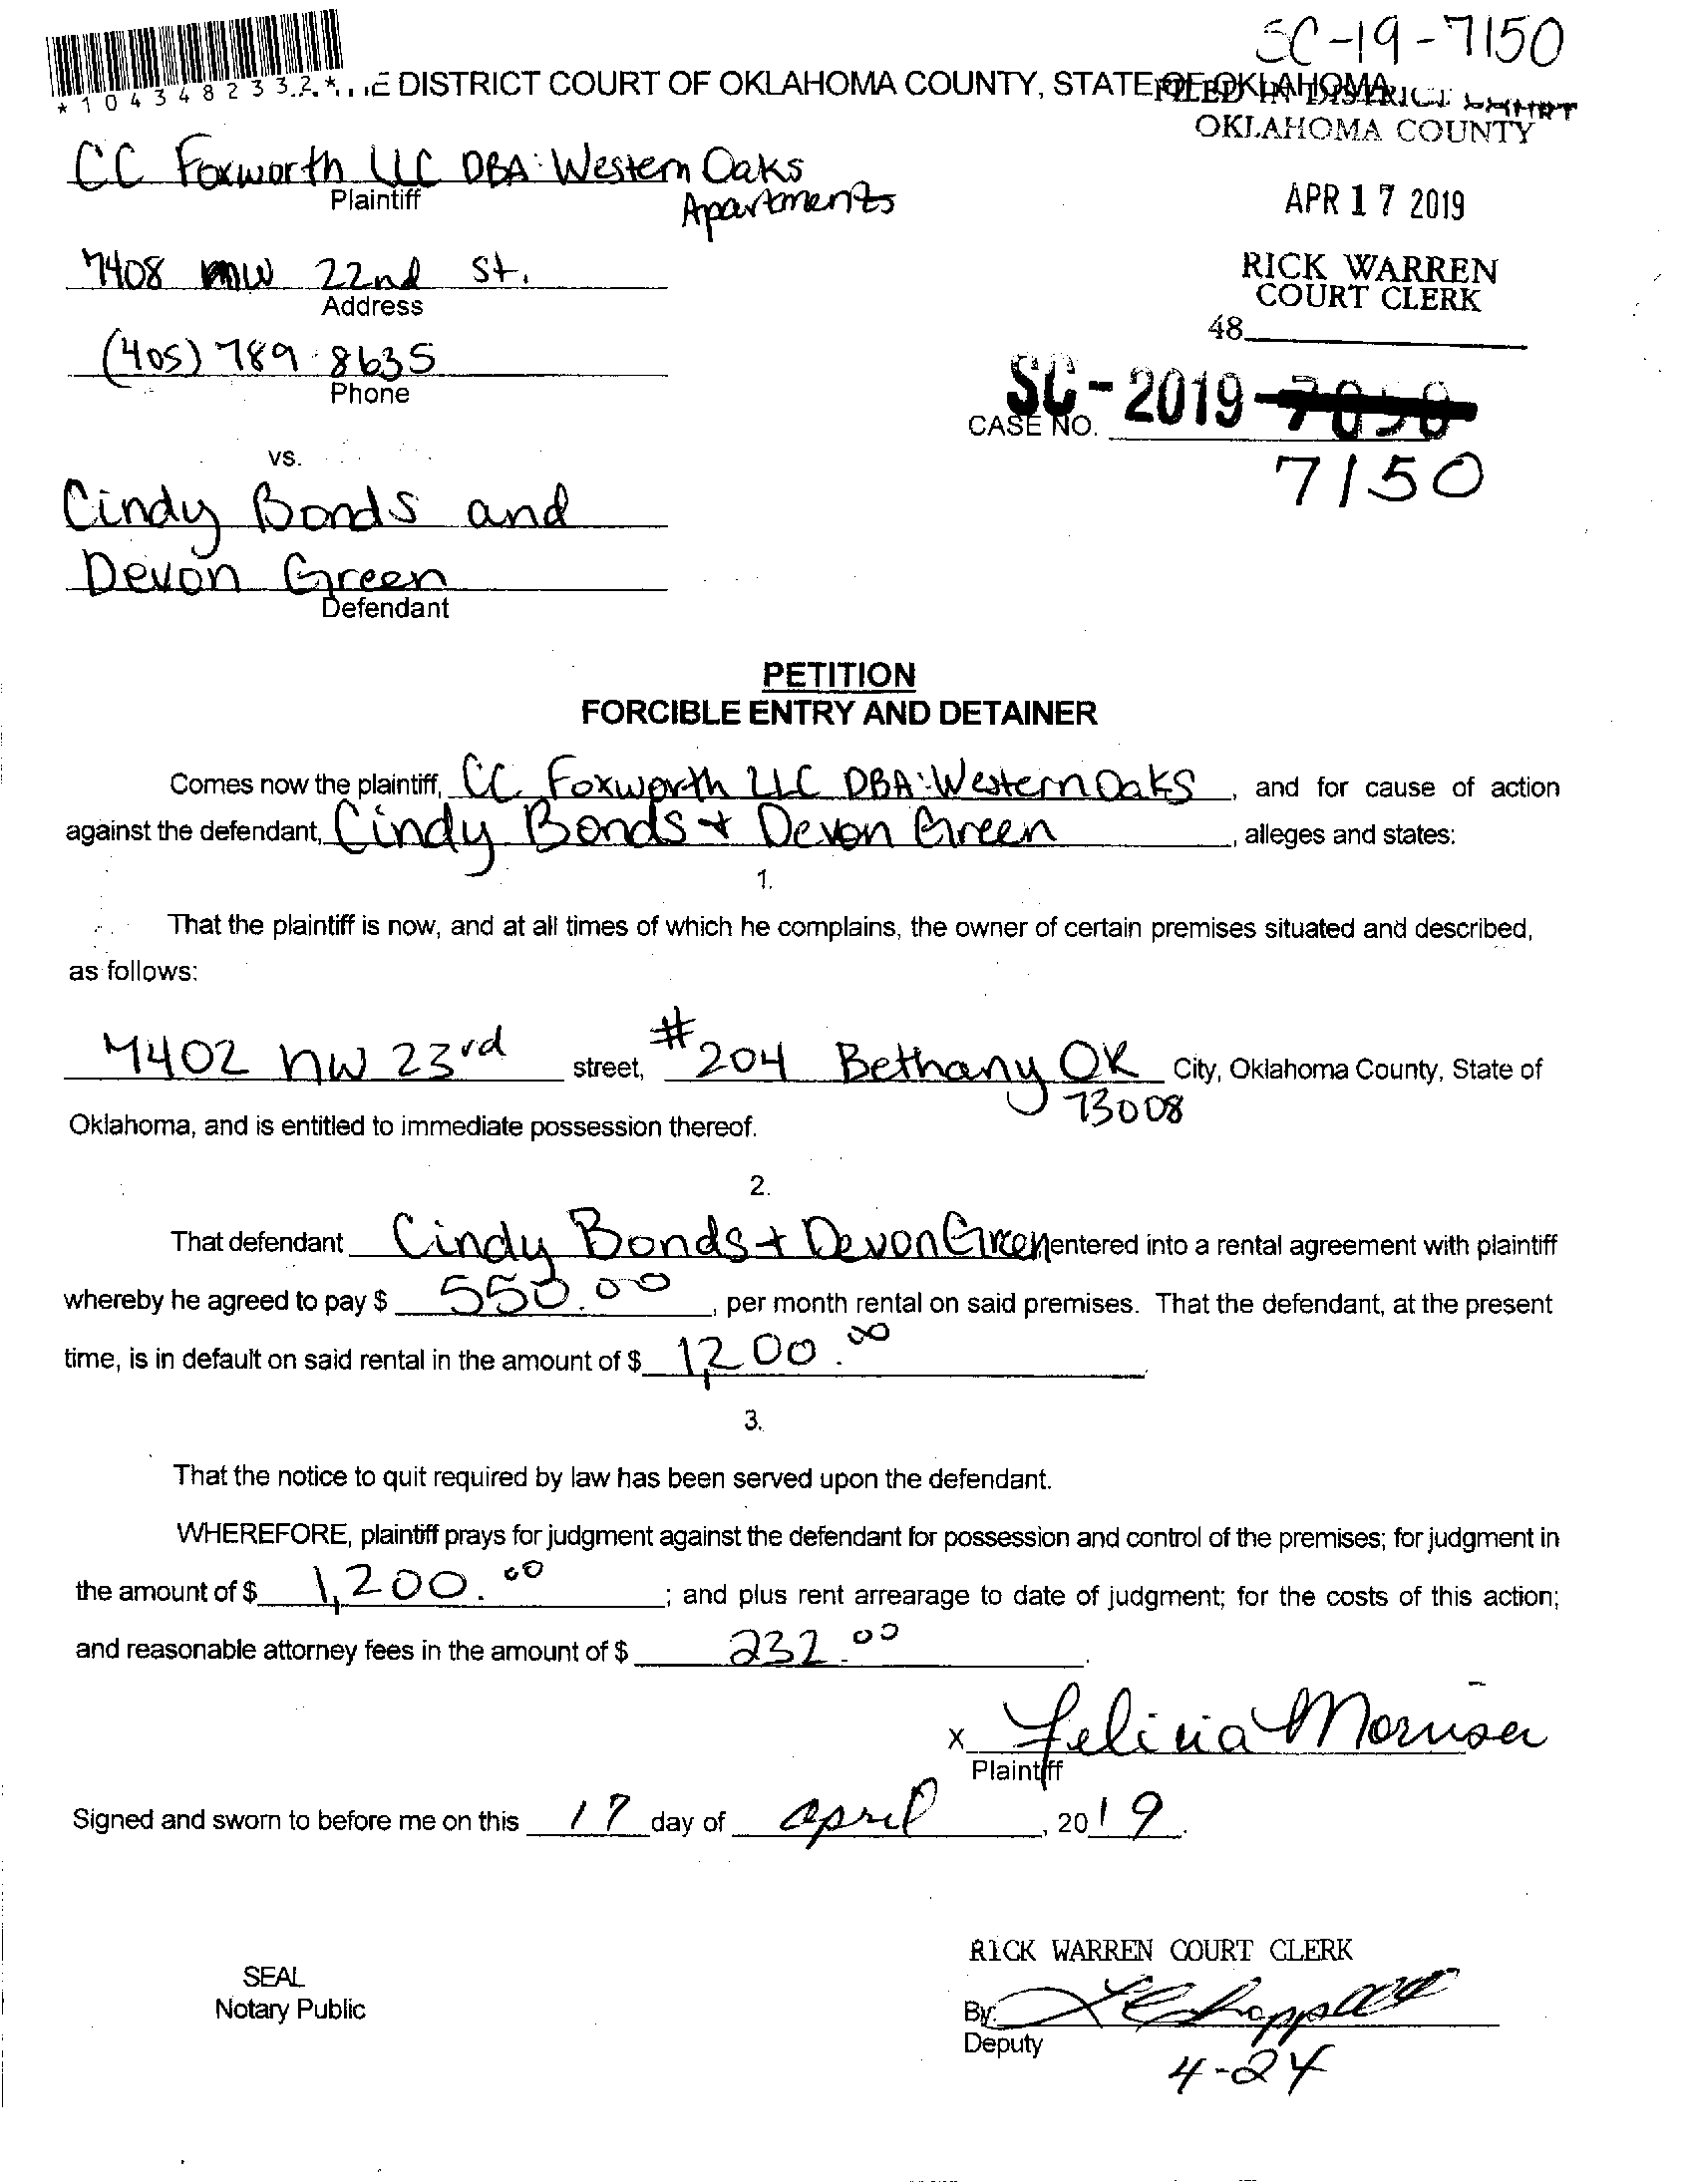 SC-19-7150
*1043482332*
E DISTRICT COURT OF OKLAHOMA COUNTY, STATE OF OKLAHOMA
FILED IN DISTRICT COURT
OKLAHOMA COUNTY
CC Foxworth LLC DBA: Western Oaks
Plaintiff
Apartments
APR 17 2019
7408 NW 22nd St.
Address
RICK WARREN
COURT CLERK
48
(405) 789-8635
Phone
SC-2019-
CASE NO.
7150
vs.
Cindy Bonds and
Devon Green
Defendant
PETITION
FORCIBLE ENTRY AND DETAINER
Comes now the plaintiff, CC Foxworth LLC DBA: Western Oaks, and for cause of action
against the defendant, Cindy Bonds + Devon Green, alleges and states:
1.
That the plaintiff is now, and at all times of which he complains, the owner of certain premises situated and described,
as follows:
7402 NW 23rd street, #204 Bethany OK City, Oklahoma County, State of
73008
Oklahoma, and is entitled to immediate possession thereof.
2.
That defendant Cindy Bonds + Devon Green entered into a rental agreement with plaintiff
whereby he agreed to pay $ 550.00, per month rental on said premises. That the defendant, at the present
time, is in default on said rental in the amount of $ 1,200.00.
3.
That the notice to quit required by law has been served upon the defendant.
WHEREFORE, plaintiff prays for judgment against the defendant for possession and control of the premises; for judgment in
the amount of $ 1,200.00; and plus rent arrearage to date of judgment; for the costs of this action;
and reasonable attorney fees in the amount of $ 232.00.
x Felicia
Plaintiff
Signed and sworn to before me on this 17 day of april, 2019.
RICK WARREN COURT CLERK
SEAL
Notary Public
By:
Deputy
4-24